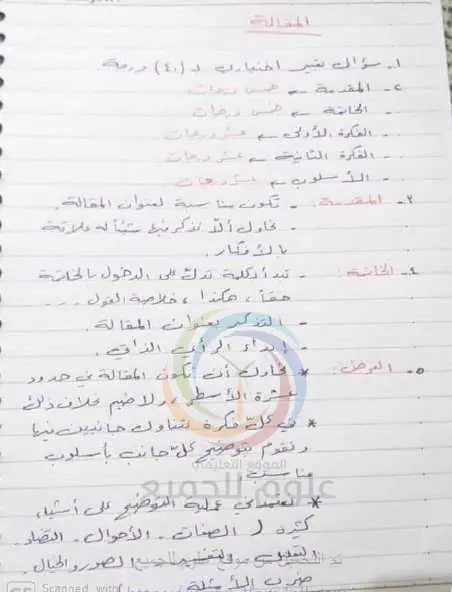 المقالة
١- سؤال تعبير اختياري لـ (٤٠) درجة.
٢- المقدمة ← خمس درجات
الخاتمة ← خمس درجات
الفكرة الأولى ← عشر درجات
الفكرة الثانية ← عشر درجات
الأسلوب ← عشر درجات
٣- المقدمة: - تكون مناسبة لعنوان المقالة.
- نحاول ألّا نذكر فيها شيئاً له علاقة
بالأفكار.
٤- الخاتمة: - نبدأ بكلمة تدل على الدخول بالخاتمة
حقاً، هكذا، خلاصة القول ...
- التذكير بعنوان المقالة.
- إبداء الرأي الذاتي.
٥- العرض: * نحاول أن تكون المقالة في حدود
عشرة الأسطر، ولا ضير خلاف ذلك
* في كلّ فكرة نتناول جانبين فيها
ونقوم بتوضيح كلّ جانب بأسلوب
مناسب.
* نعتمد في عملية التوضيح على أشياء
كثيرة (الصفات - الأحوال - التضاد -
الصور والخيال.
ضرب الأمثلة
الموقع التعليمي
علوم للجميع
Scanned with